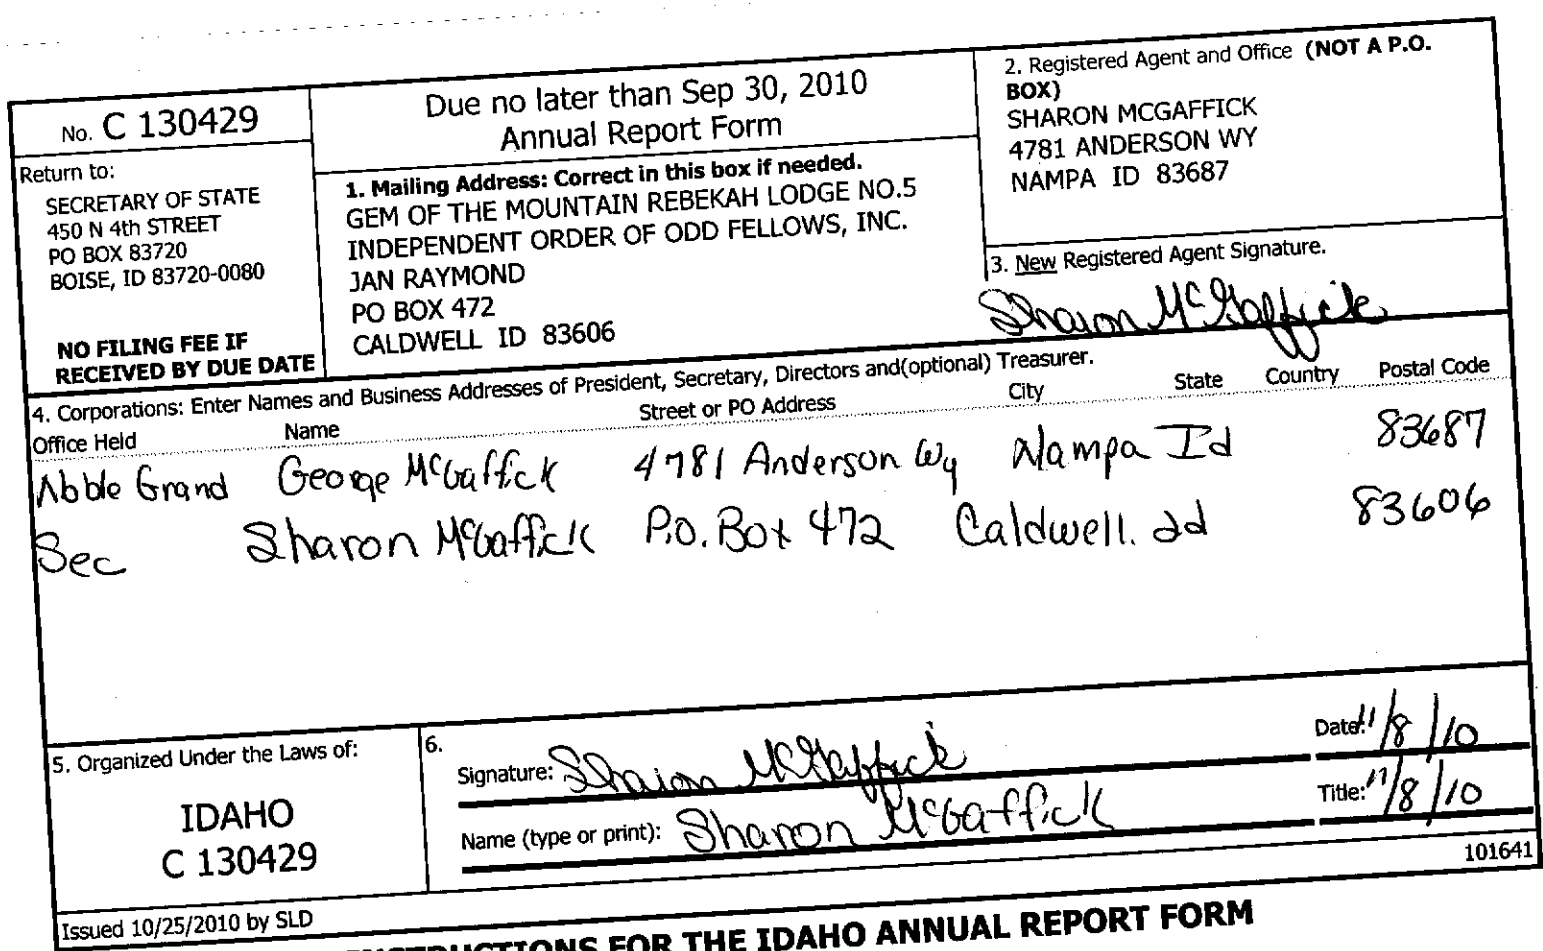 No. C 130429
Return to:
SECRETARY OF STATE
450 N 4th STREET
PO BOX 83720
BOISE, ID 83720-0080
NO FILING FEE IF
RECEIVED BY DUE DATE
Due no later than Sep 30, 2010
Annual Report Form
1. Mailing Address: Correct in this box if needed.
GEM OF THE MOUNTAIN REBEKAH LODGE NO.5
INDEPENDENT ORDER OF ODD FELLOWS, INC.
JAN RAYMOND
PO BOX 472
CALDWELL ID 83606
2. Registered Agent and Office (NOT A P.O.
BOX)
SHARON MCGAFFICK
4781 ANDERSON WY
NAMPA ID 83687
3. New Registered Agent Signature.
Sharon McGaffick
4. Corporations: Enter Names and Business Addresses of President, Secretary, Directors and(optional) Treasurer.
Office Held Name Street or PO Address City State Country Postal Code
Noble Grand George McGaffick 4781 Anderson Wy Nampa Id 83687
Sec Sharon McGaffick P.O. Box 472 Caldwell. Id 83606
5. Organized Under the Laws of:
IDAHO
C 130429
6.
Signature: Sharon McGaffick Date: 11/8/10
Name (type or print): Sharon McGaffick Title: 11/8/10
101641
Issued 10/25/2010 by SLD
INSTRUCTIONS FOR THE IDAHO ANNUAL REPORT FORM